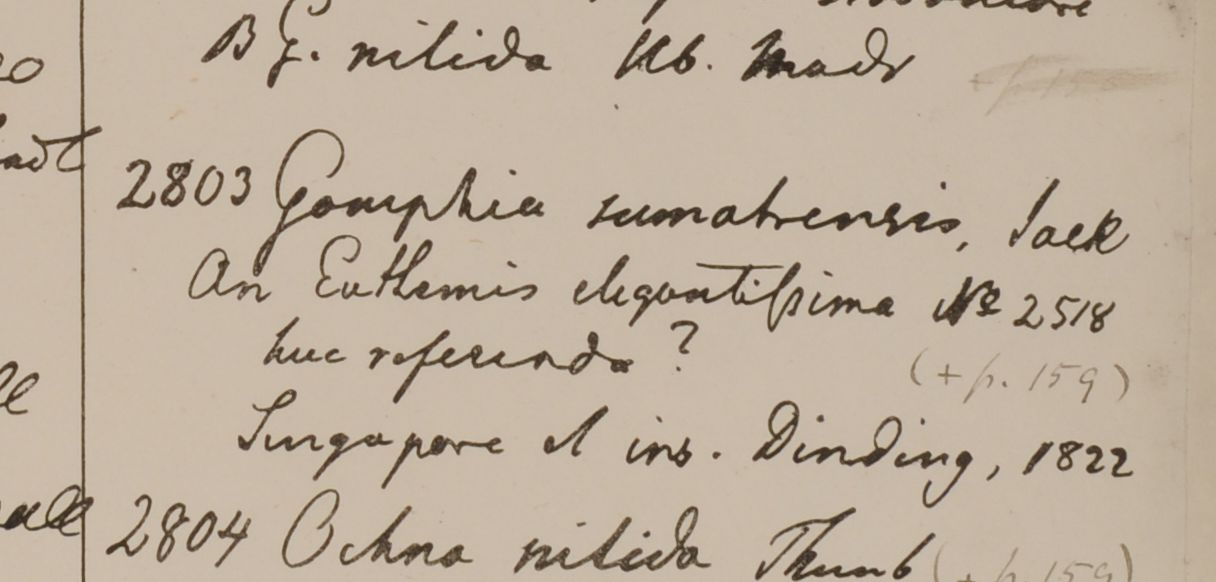 B G. nitida Hb. Madr
2803 Gomphia sumatrensis, Jack
An Euthemis elegantissima No 2518
huc referenda ?
(+ p. 159)
Singapore et ins. Dinding, 1822
2804 Ochna nitida Thunb (+ p. 159)